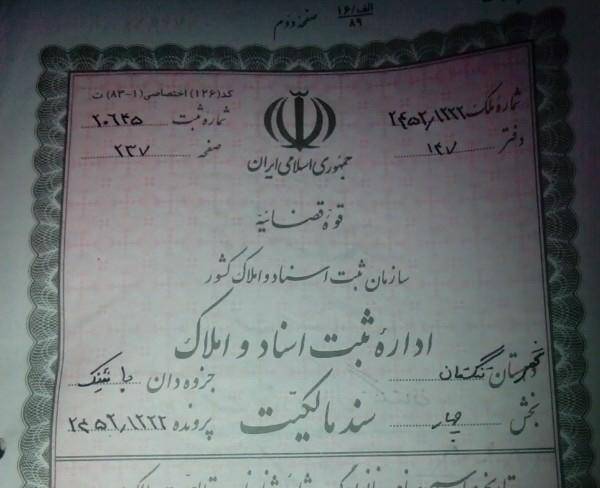 الف/۱۶
۸۹
صفحه دوم
کد(۱۲۶) اختصاصی(۱-۸۳) ت
شماره ملک ۲۴۵۲/۱۲۲۲
شماره ثبت ۲۰۶۴۵
دفتر ۱۴۷
صفحه ۲۳۷
جمهوری اسلامی ایران
قوه قضائیه
سازمان ثبت اسناد و املاک کشور
اداره ثبت اسناد و املاک
شهرستان تنگستان
جزوه دان
بخش چهار
سند مالکیت
پرونده ۲۴۵۲/۱۲۲۲